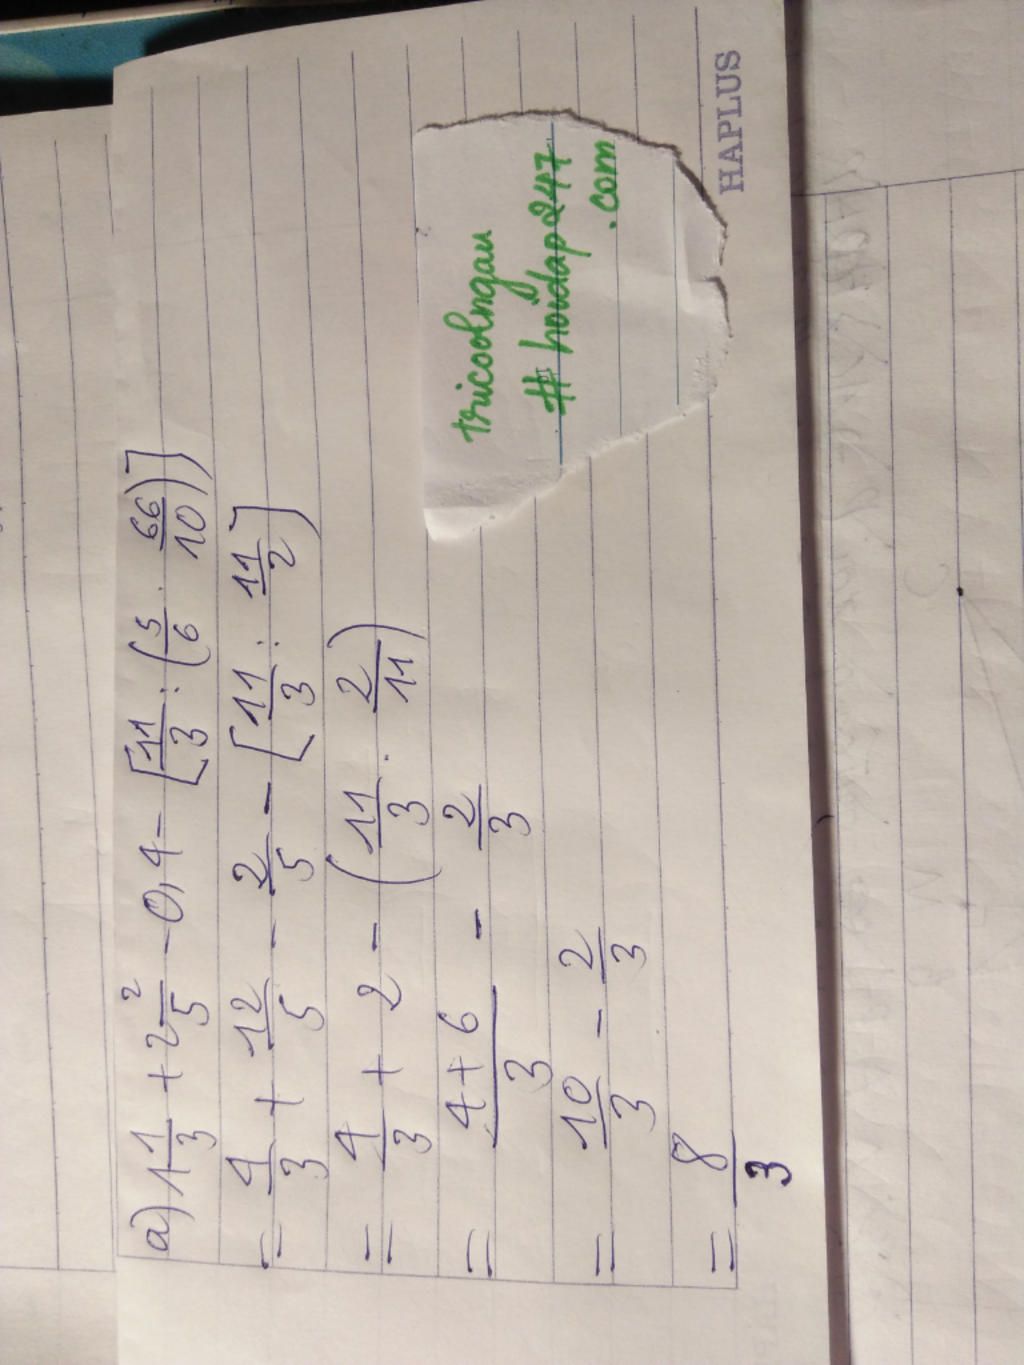 a) 1 1/3 + 2 2/5 - 0,4 - [11/3 : (5/6 . 66/10)]
= 4/3 + 12/5 - 2/5 - [11/3 : 11/2]
= 4/3 + 2 - (11/3 . 2/11)
= 4+6/3 - 2/3
= 10/3 - 2/3
= 8/3
tricoolngau
# hoidap247
.com
HAPLUS